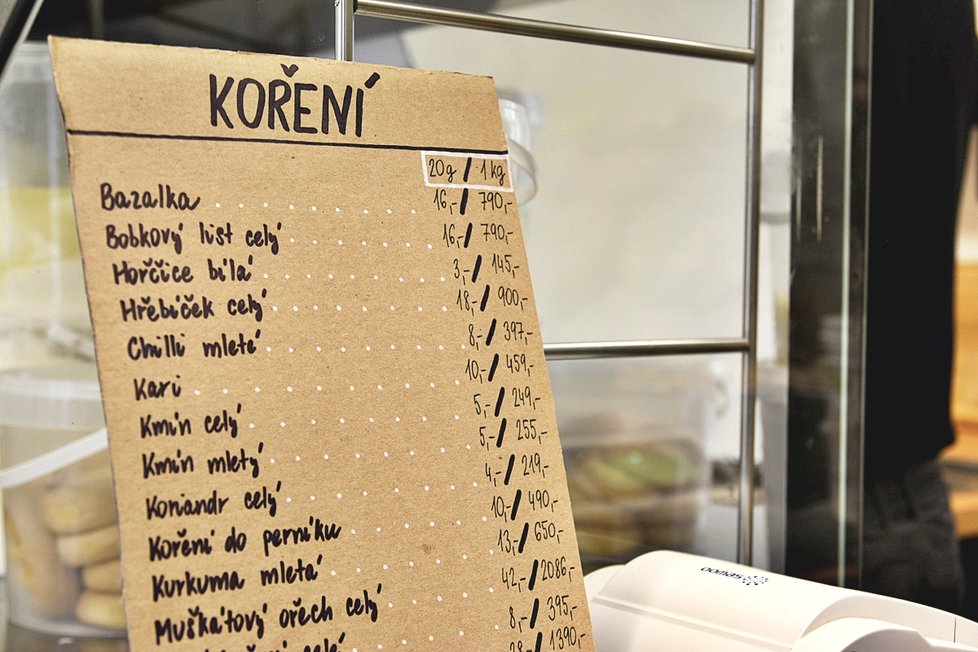 KOŘENÍ
20g / 1 kg
Bazalka 16,- / 790,-
Bobkový list celý 16,- / 790,-
Hořčice bílá 3,- / 145,-
Hřebíček celý 18,- / 900,-
Chilli mleté 8,- / 397,-
Kari 10,- / 459,-
Kmín celý 5,- / 249,-
Kmín mletý 5,- / 255,-
Koriandr celý 4,- / 219,-
Koření do perníku 10,- / 490,-
Kurkuma mletá 13,- / 650,-
Muškátový ořech celý 42,- / 2086,-
8,- / 395,-
1390,-
oomas